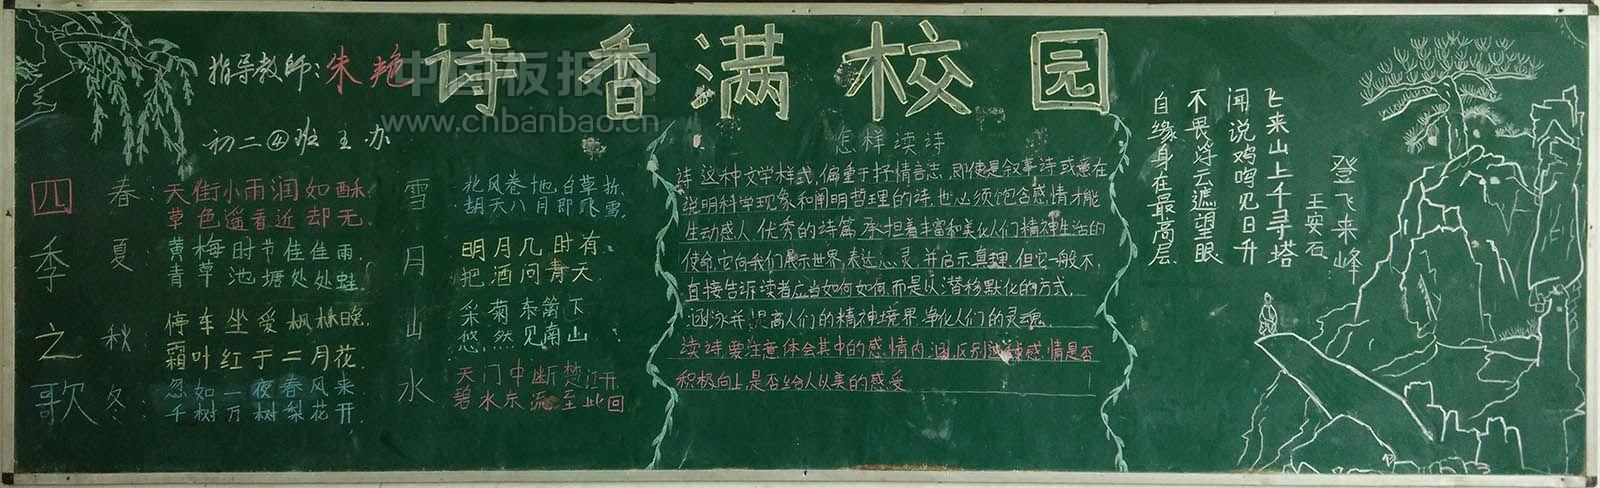 诗香满校园
指导教师:朱艳
初二④班主办
中国板报网
www.cnbanbao.cn
四季之歌
春:天街小雨润如酥,
草色遥看近却无.
夏:黄梅时节佳佳雨,
青草池塘处处蛙.
秋:停车坐爱枫林晚,
霜叶红于二月花.
冬:忽如一夜春风来
千树万树梨花开.
雪
北风卷地白草折,
胡天八月即飞雪.
月
明月几时有,
把酒问青天.
山
采菊东篱下
悠然见南山
水
天门中断楚江开,
碧水东流至此回
怎样读诗
诗这种文学样式,偏重于抒情言志,即使是叙事诗或意在
说明科学现象和阐明哲理的诗,也必须饱含感情才能
生动感人.优秀的诗篇,承担着丰富和美化人们精神生活的
使命,它向我们展示世界,表达心灵,并启示真理.但它一般不
直接告诉读者应当如何如何,而是以潜移默化的方式,
涵泳并提高人们的精神境界,净化人们的灵魂.
读诗,要注意体会其中的感情内涵,区别这种感情是否
积极向上,是否给人以美的感受
登飞来峰
王安石
飞来山上千寻塔
闻说鸡鸣见日升
不畏浮云遮望眼
自缘身在最高层